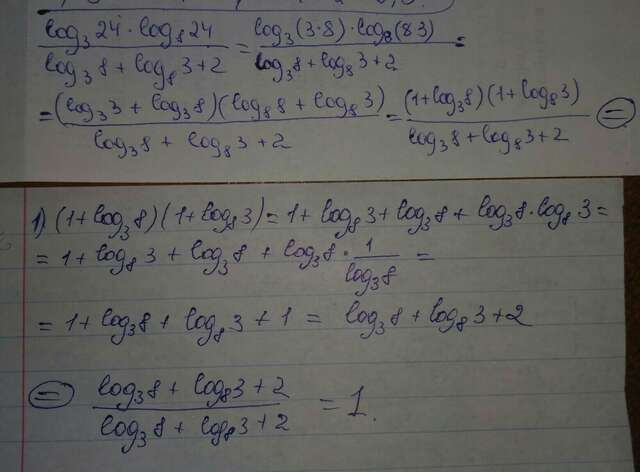 log₃24 · log₈24 / (log₃8 + log₈3 + 2) = log₃(3·8) · log₈(8·3) / (log₃8 + log₈3 + 2) =
= (log₃3 + log₃8)(log₈8 + log₈3) / (log₃8 + log₈3 + 2) = (1+log₃8)(1+log₈3) / (log₃8 + log₈3 + 2) =
1) (1+log₃8)(1+log₈3) = 1 + log₈3 + log₃8 + log₃8 · log₈3 =
= 1 + log₈3 + log₃8 + log₃8 · 1 / log₃8 =
= 1 + log₃8 + log₈3 + 1 = log₃8 + log₈3 + 2
= (log₃8 + log₈3 + 2) / (log₃8 + log₈3 + 2) = 1.